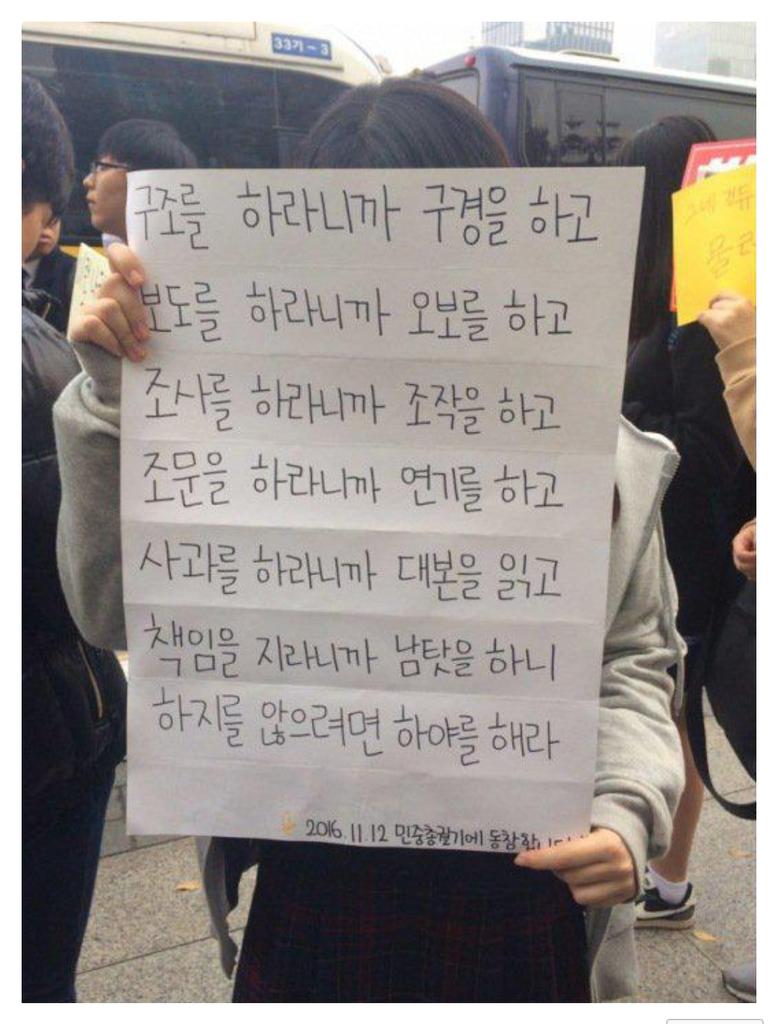 33기-3
구조를 하라니까 구경을 하고
보도를 하라니까 오보를 하고
조사를 하라니까 조작을 하고
조문을 하라니까 연기를 하고
사과를 하라니까 대본을 읽고
책임을 지라니까 남탓을 하니
하지를 않으려면 하야를 해라
2016.11.12 민중총궐기에 동참합니다